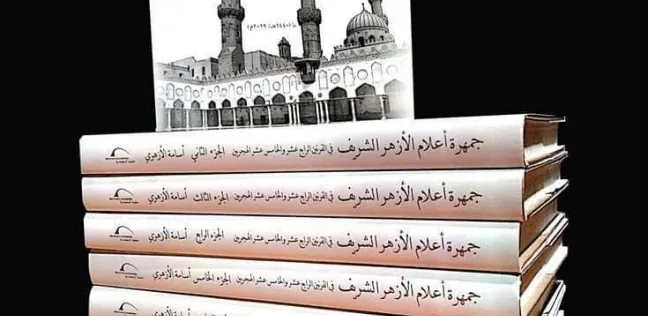 (١٤٤٠هـ/٢٠١٩م)
جمهرة أعلام الأزهر الشريف في القرنين الرابع عشر والخامس عشر الهجريين الجزء الثاني أسامة الأزهري
جمهرة أعلام الأزهر الشريف في القرنين الرابع عشر والخامس عشر الهجريين الجزء الثالث أسامة الأزهري
جمهرة أعلام الأزهر الشريف في القرنين الرابع عشر والخامس عشر الهجريين الجزء الرابع أسامة الأزهري
جمهرة أعلام الأزهر الشريف في القرنين الرابع عشر والخامس عشر الهجريين الجزء الخامس أسامة الأزهري